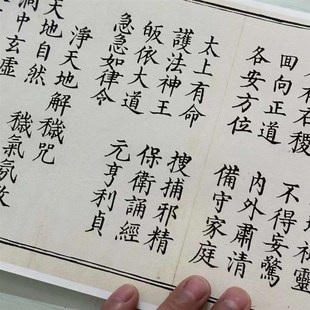 祇靈
右稷 不得妄驚
回向正道 內外肅清
各安方位 備守家庭
太上有命 搜捕邪精
護法神王 保衛誦經
皈依大道 元亨利貞
急急如律令
淨天地解穢咒
天地自然 穢氣氛散
洞中玄虛